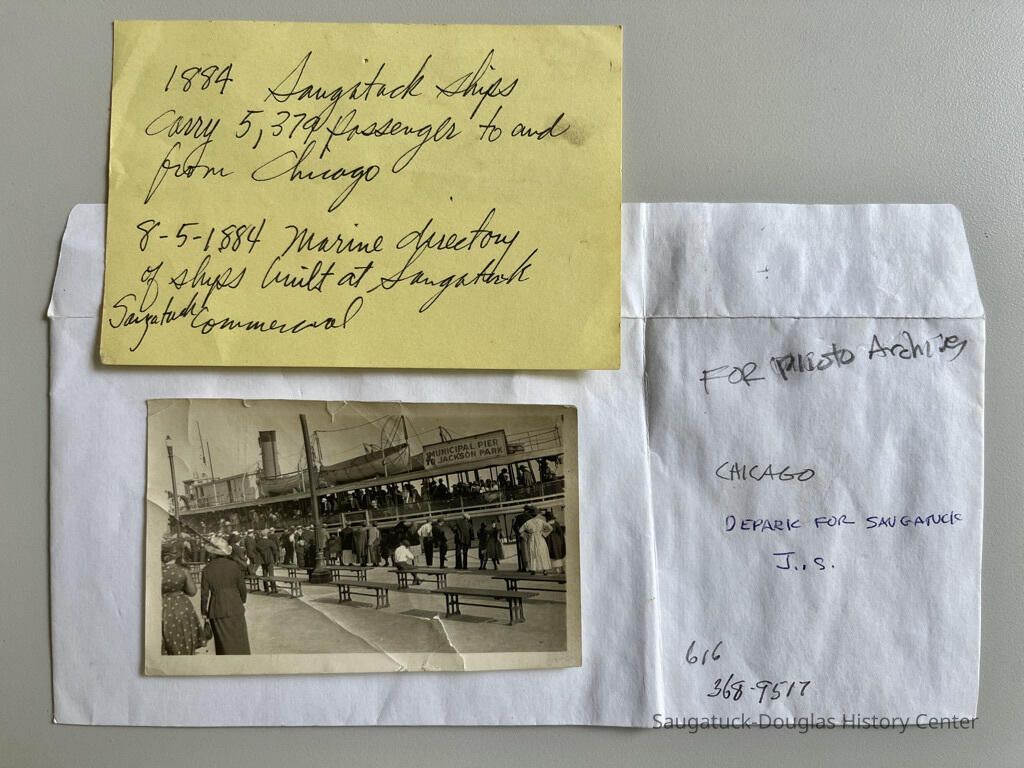 1884 Saugatuck ships
Carry 5,379 passenger to and
from Chicago
8-5-1884 Marine directory
of ships built at Saugatuck
Saugatuck Commercial
MUNICIPAL PIER
TO JACKSON PARK
FOR PHOTO Archives
CHICAGO
DEPARK FOR SAUGATUCK
J..S.
616
368-9517
Saugatuck-Douglas History Center